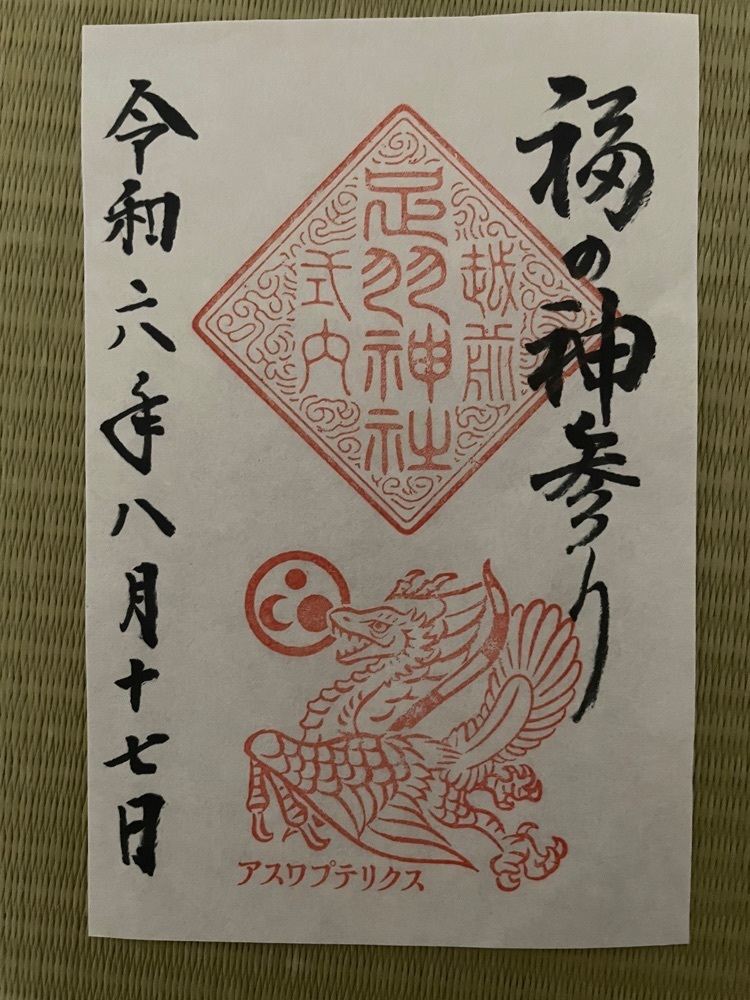 福の神参り
越前
足羽神社
式内
アスワプテリクス
令和六年八月十七日